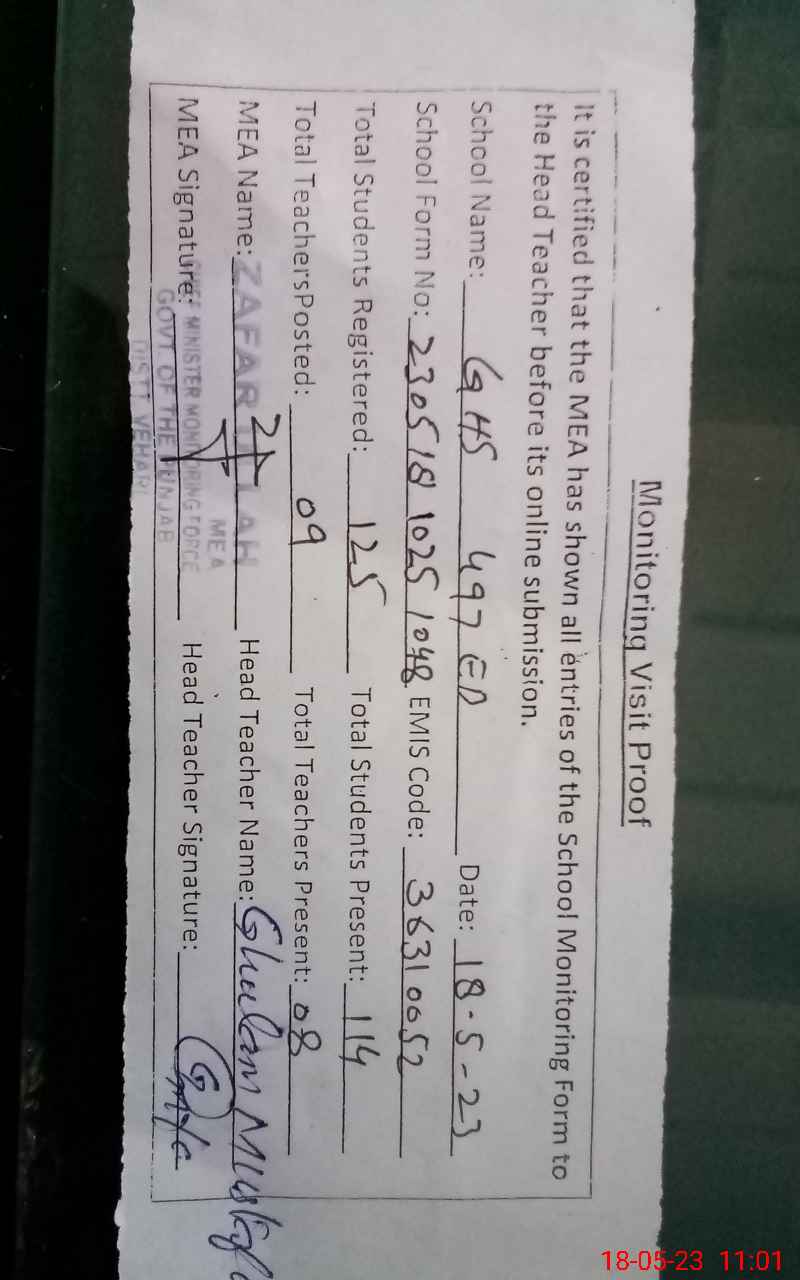 Monitoring Visit Proof
It is certified that the MEA has shown all entries of the School Monitoring Form to
the Head Teacher before its online submission.
School Name: GHS 497 EB Date: 18-5-23
School Form No: 230518 1025 1048 EMIS Code: 36310052
Total Students Registered: 125 Total Students Present: 114
Total TeachersPosted: 09 Total Teachers Present: 08
MEA Name: ZAFAR ULLAH Head Teacher Name: Ghulam Mustafa
MEA
MEA Signature: Head Teacher Signature:
CHIEF MINISTER MONITORING FORCE
GOVT. OF THE PUNJAB
DISTT. VEHARI
18-05-23 11:01